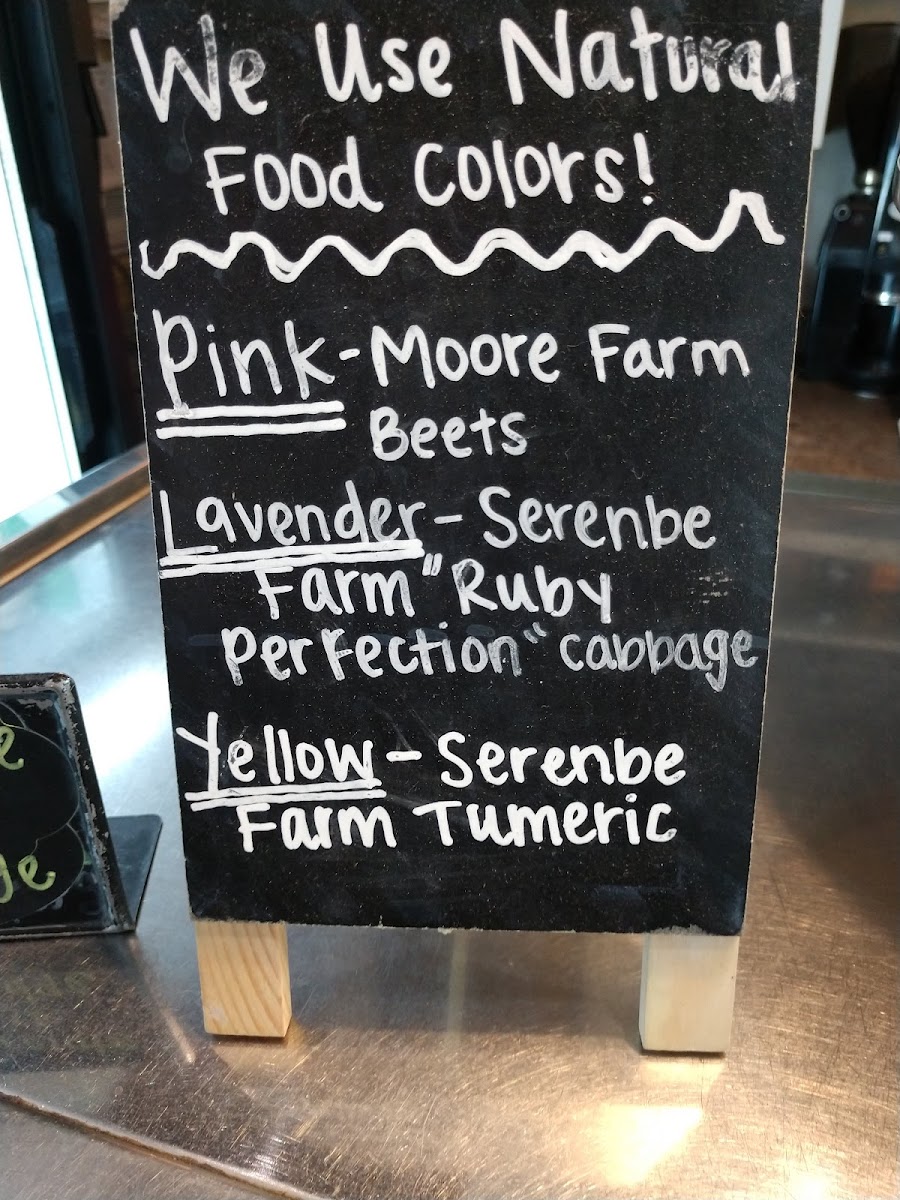 We Use Natural
Food Colors!
Pink-Moore Farm
Beets
Lavender-Serenbe
Farm "Ruby
Perfection" cabbage
Yellow-Serenbe
Farm Tumeric